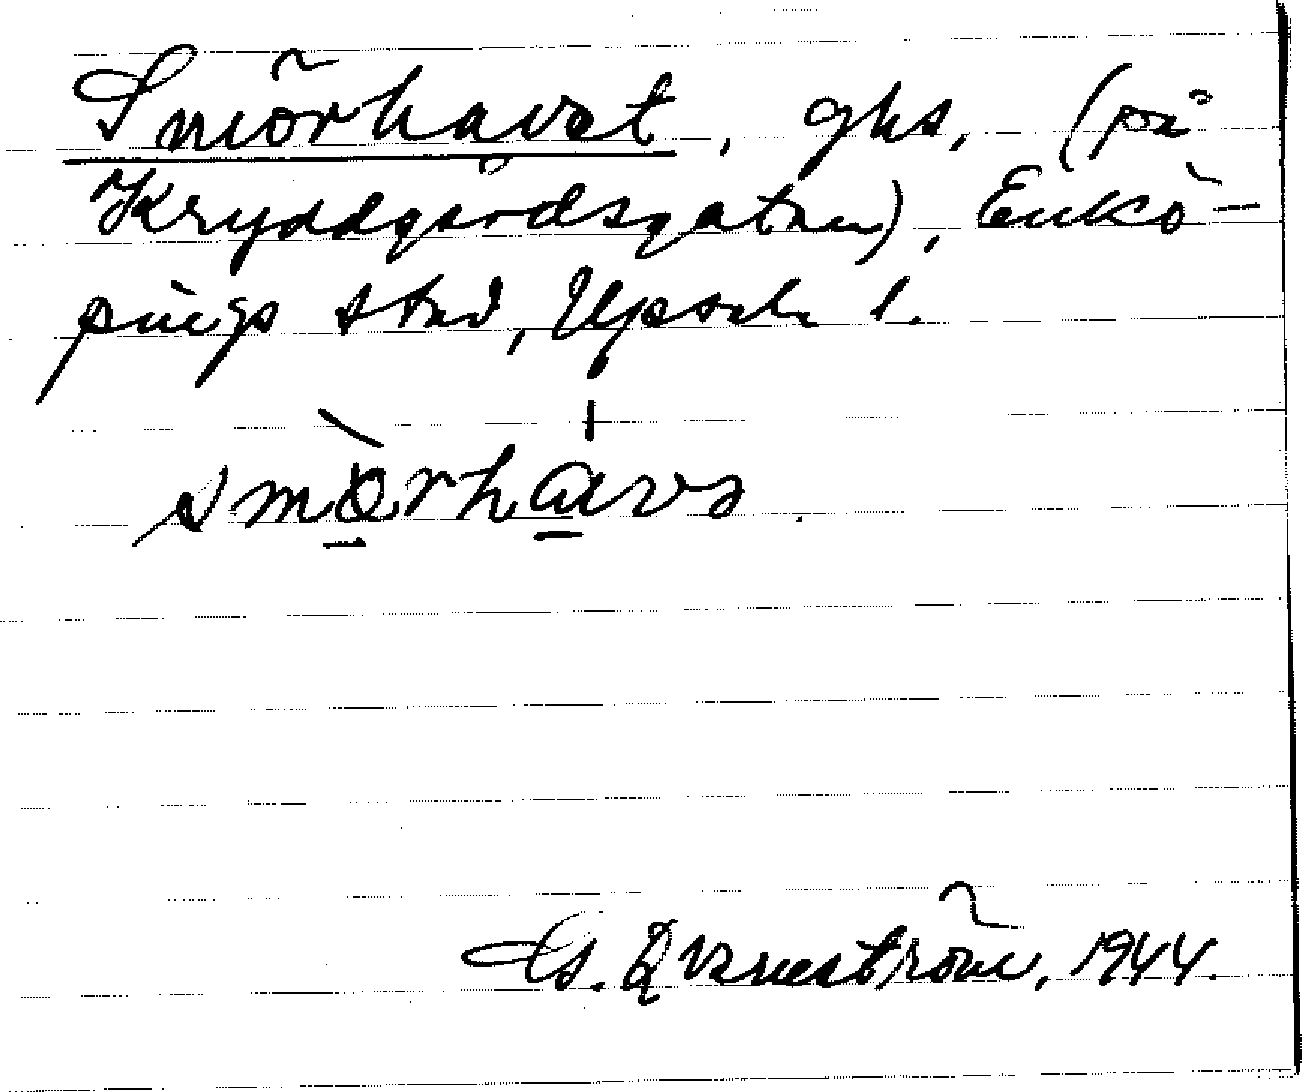 Smörhavet, ghs, (på
Kryddgårdsgatan), Enkö-
pings stad, Upsala l.
smö̀rhávə.
Qvarnström, 1944.